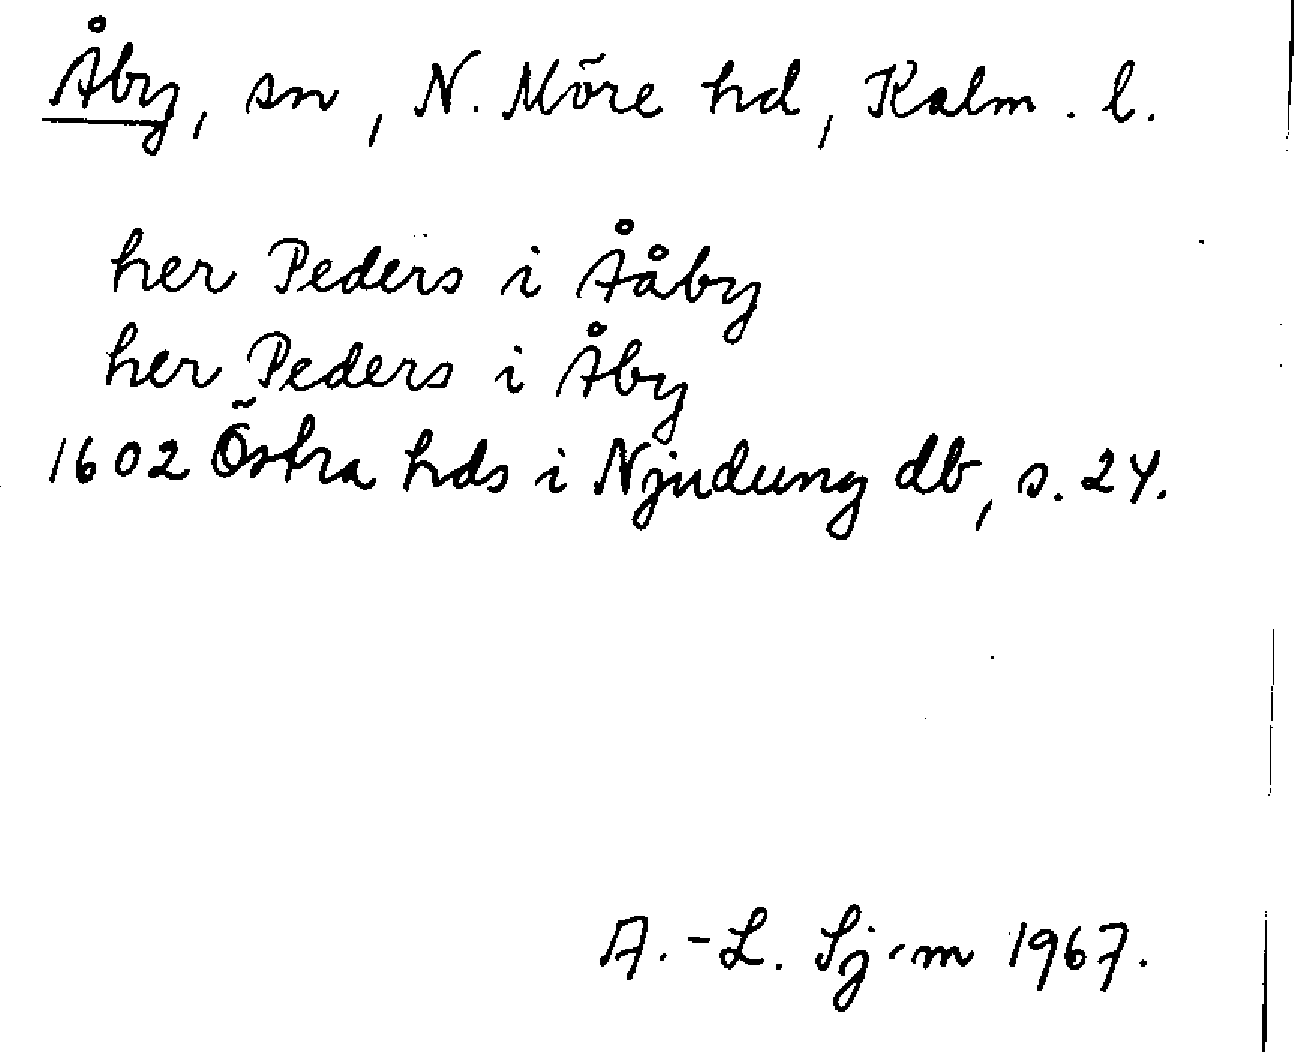 Åby, sn, N. Möre hd, Kalm. l.
her Peders i Ååby
her Peders i Åby
1602 Östra hds i Njudung db, s. 24.
A.-L. Sj-m 1967.